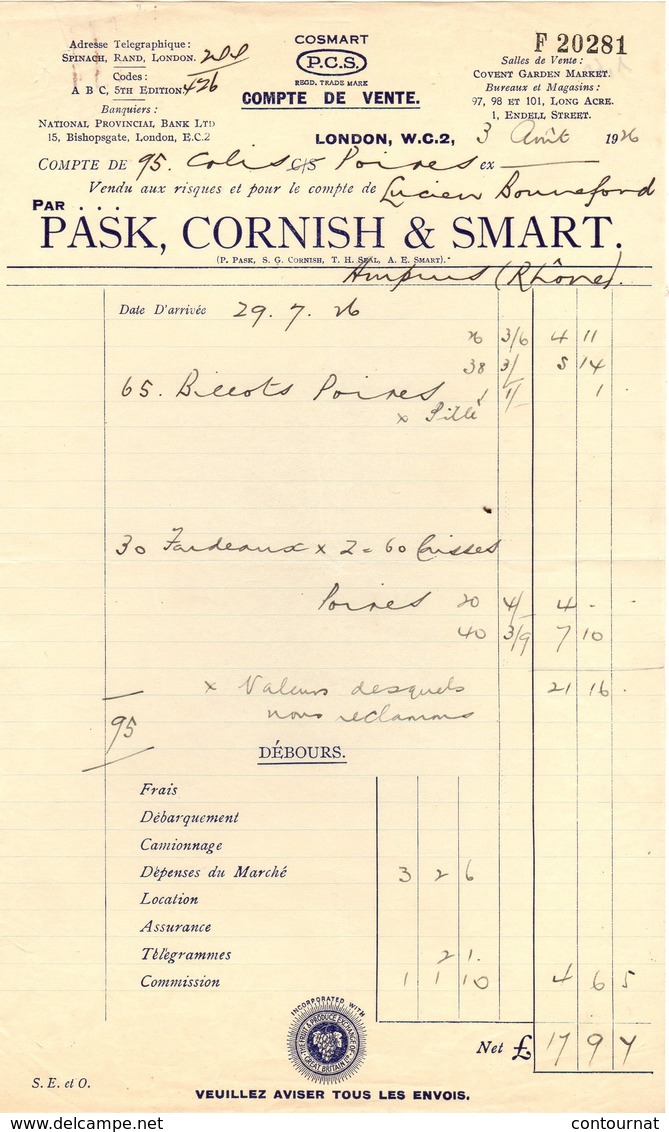 COSMART
P.C.S.
REGD. TRADE MARK
COMPTE DE VENTE.
Adresse Telegraphique:
SPINACH, RAND, LONDON.
Codes:
A B C, 5TH EDITION. 426
Banquiers:
NATIONAL PROVINCIAL BANK LTD
15, Bishopsgate, London, E.C.2
F 20281
Salles de Vente:
COVENT GARDEN MARKET.
Bureaux et Magasins:
97, 98 ET 101, LONG ACRE.
1, ENDELL STREET.
LONDON, W.C.2, 3 Août 1926
COMPTE DE 95. Colis C/S Poires ex
Vendu aux risques et pour le compte de Lucien Bonnefond
PAR . . .
PASK, CORNISH & SMART.
(P. PASK, S. G. CORNISH, T. H. SEAL, A. E. SMART).
Ampuis (Rhône).
Date D'arrivée 29. 7. 26
26 3/6 4 11
38 3/ 5 14
65. Billots Poires 1 1/- 1
x Pillé
30 Fardeaux x 2 = 60 Caisses
Poires 20 4/- 4 -
40 3/9 7 10
x Valeurs desquels 21 16 .
nous reclamons
95
DÉBOURS.
Frais
Débarquement
Camionnage
Dépenses du Marché 3 2 6
Location
Assurance
Télégrammes 2 1.
Commission 1 1 10 4 6 5
INCORPORATED WITH
THE FRUIT & PRODUCE EXCHANGE OF GREAT BRITAIN LD
Net £ 17 9 7
S. E. et O.
VEUILLEZ AVISER TOUS LES ENVOIS.
contournat